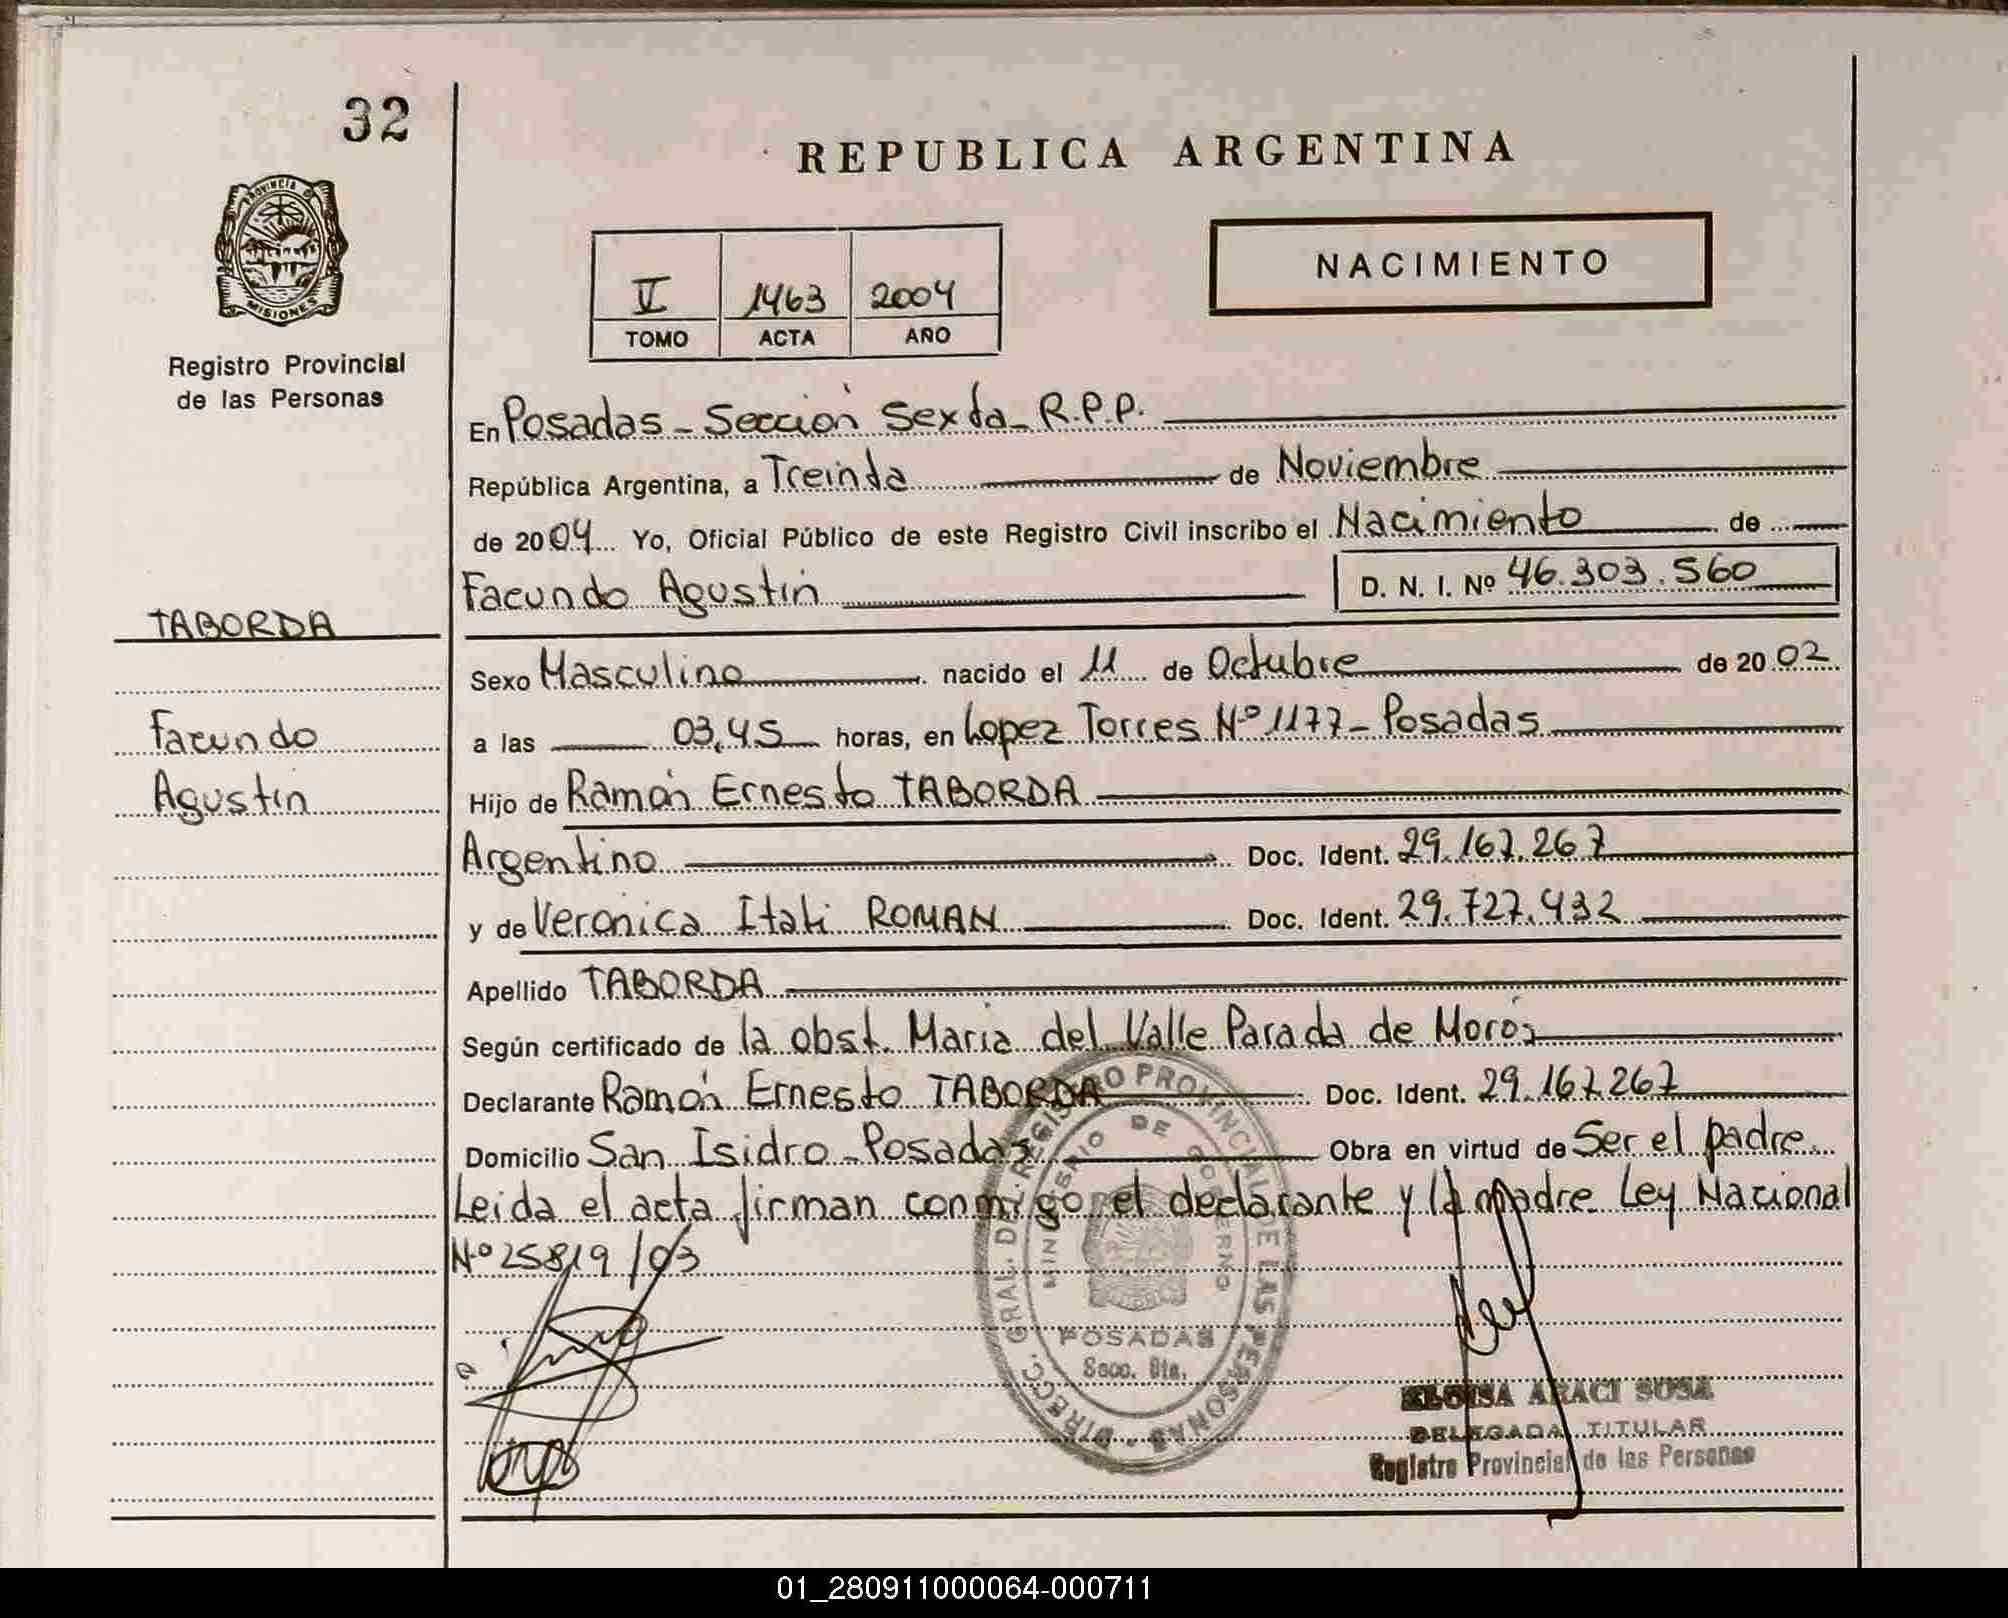 32
REPUBLICA ARGENTINA
PROVINCIA DE
MISIONES
Registro Provincial
de las Personas
NACIMIENTO
V 1463 2004
TOMO ACTA AÑO
En Posadas - Sección Sexta - R.P.P.
República Argentina, a Treinta de Noviembre
de 2004 Yo, Oficial Público de este Registro Civil inscribo el Nacimiento de
Facundo Agustín D. N. I. Nº 46.303.560
TABORDA
Sexo Masculino nacido el 11 de Octubre de 2002
Facundo
a las 03,45 horas, en Lopez Torres Nº 1177 - Posadas
Agustín
Hijo de Ramón Ernesto TABORDA
Argentino Doc. Ident. 29.167.267
y de Veronica Itati ROMAN Doc. Ident. 29.727.432
Apellido TABORDA
Según certificado de la obst. Maria del Valle Parada de Morós
Declarante Ramón Ernesto TABORDA Doc. Ident. 29.167.267
Domicilio San Isidro - Posadas Obra en virtud de Ser el padre
Leida el acta firman conmigo el declarante y la madre Ley Nacional
Nº 25819/03
DIRECC. GRAL. DEL REGISTRO PROVINCIAL DE LAS PERSONAS
MINISTERIO DE GOBIERNO
POSADAS
Secc. 6ta.
ELOISA ARACI SOSA
DELEGADA TITULAR
Registro Provincial de las Personas
01_280911000064-000711